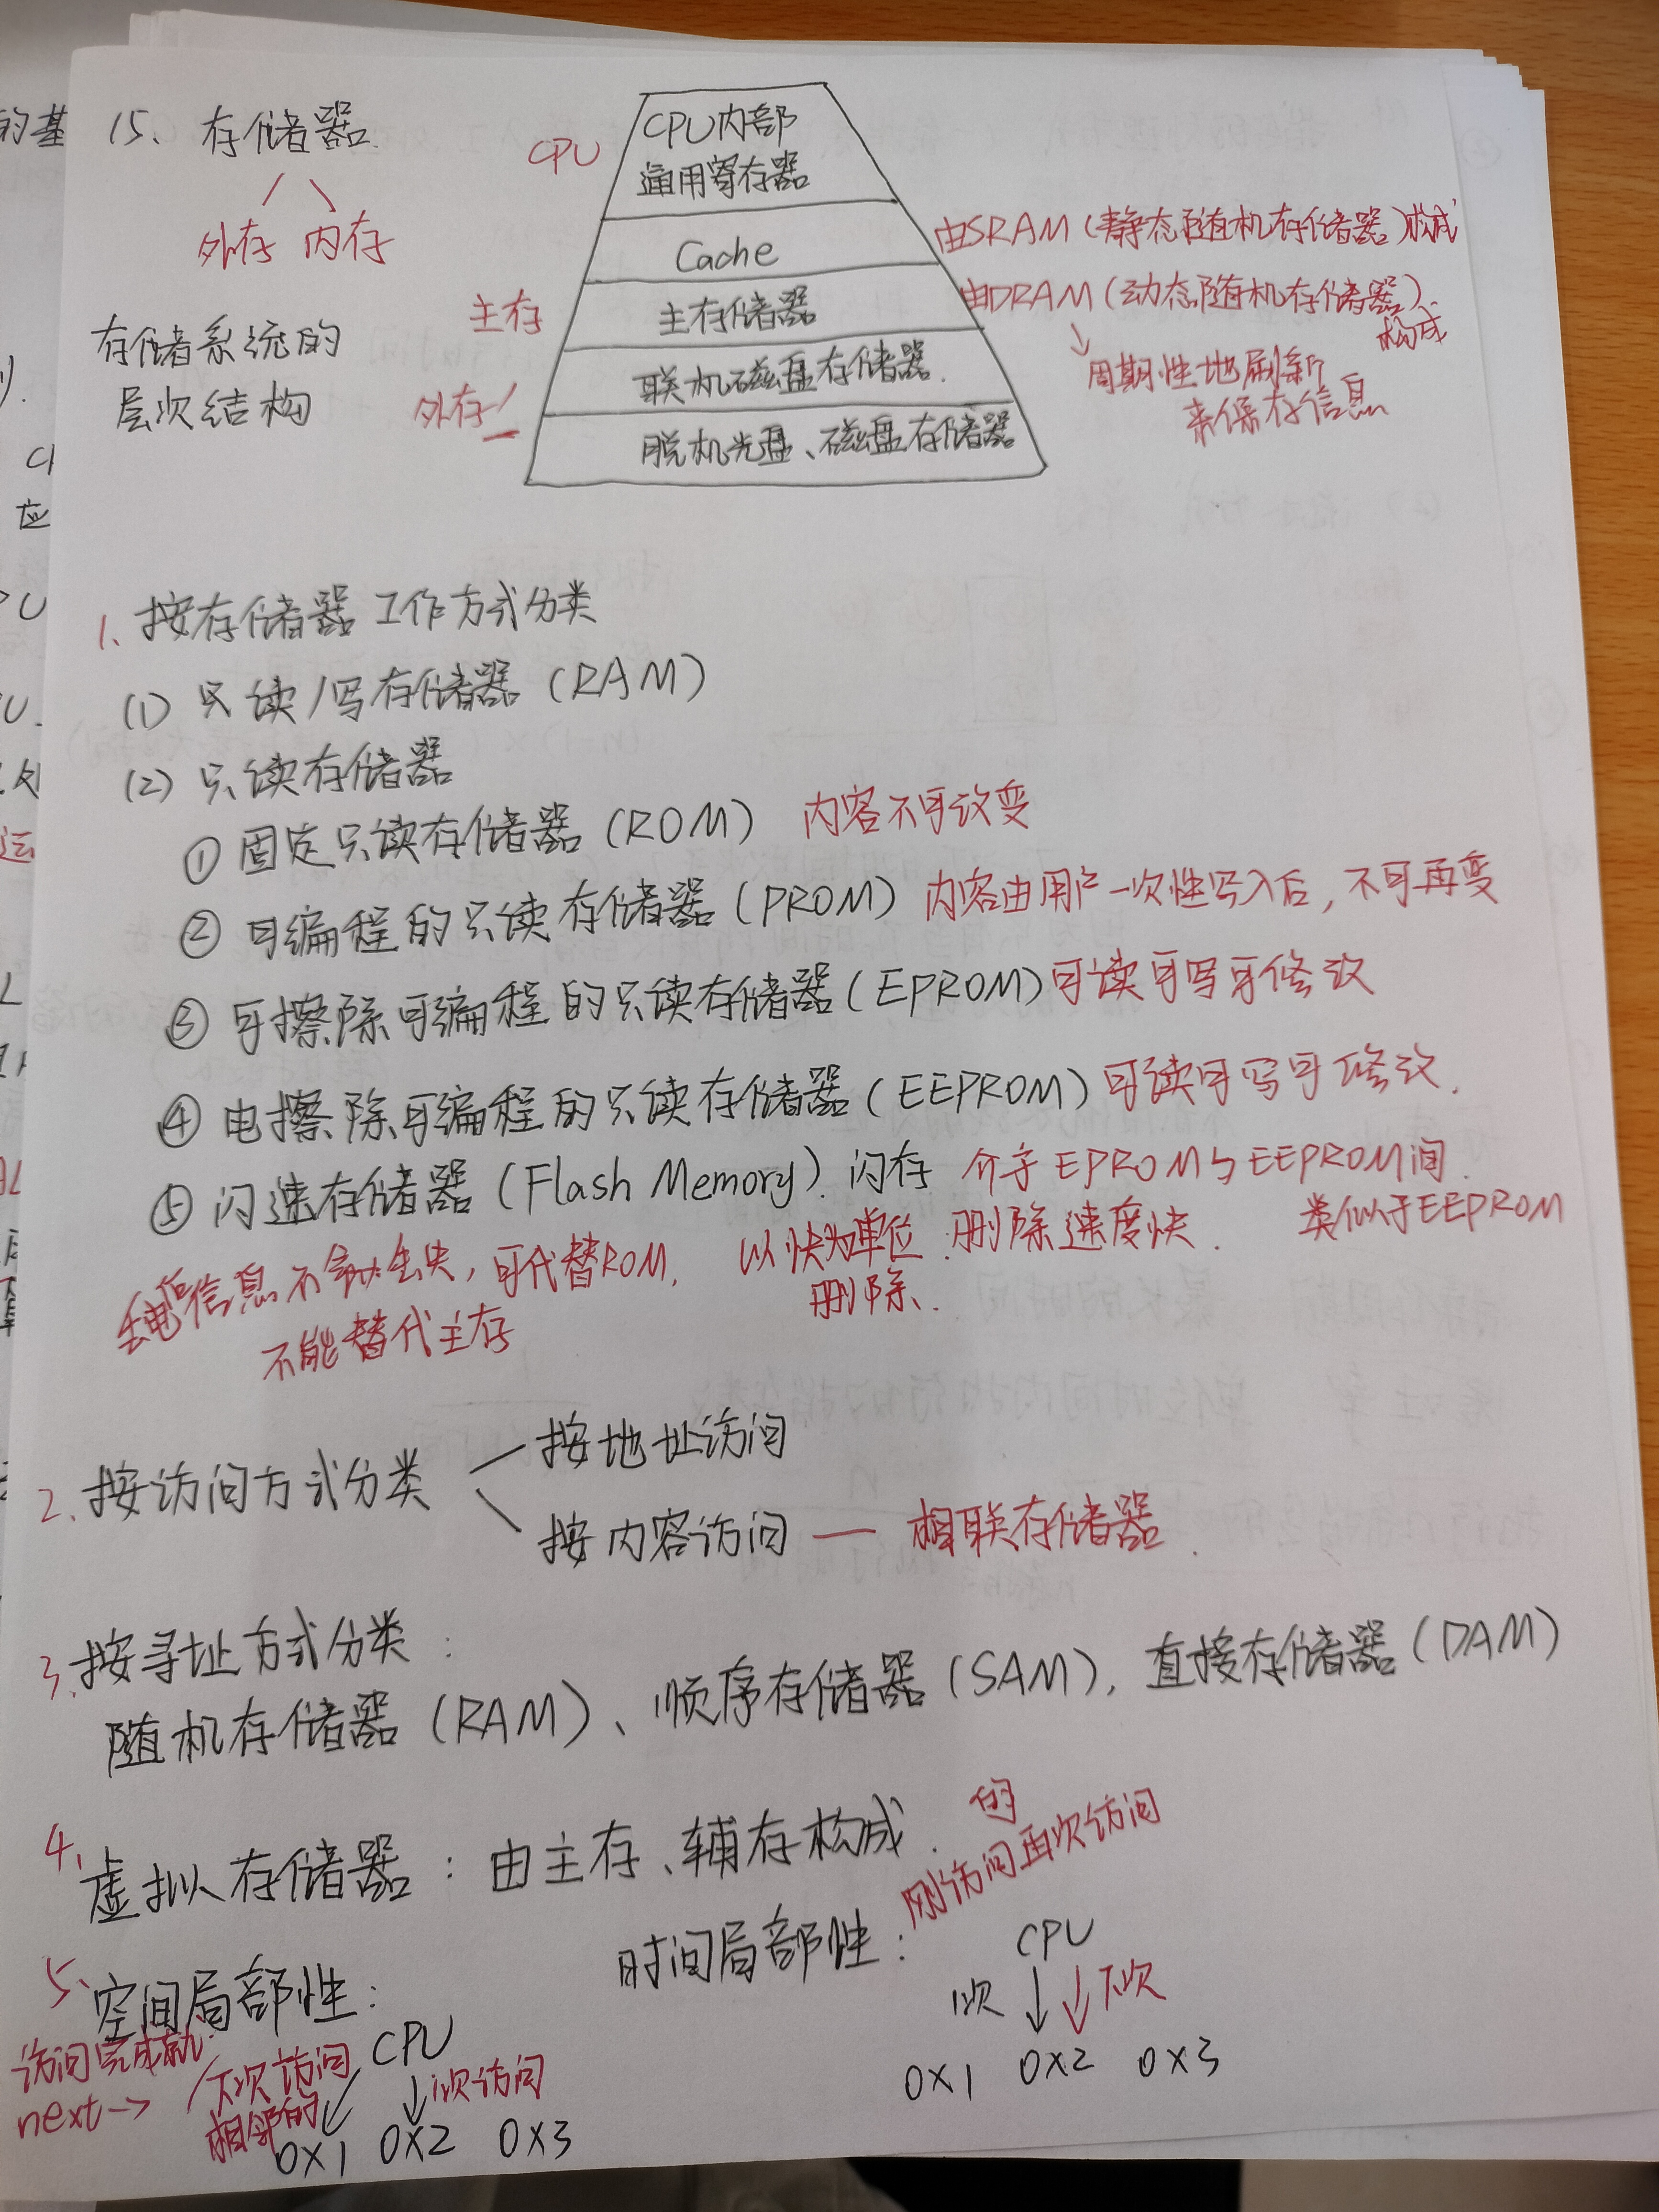 15、存储器
外存 内存
存储系统的
层次结构
CPU
CPU内部
通用寄存器
Cache
由SRAM(静态随机存储器)构成
主存
主存储器
由DRAM(动态随机存储器)、
构成
周期性地刷新
来保存信息
外存
联机磁盘存储器.
脱机光盘、磁盘存储器
1、按存储器工作方式分类
(1) 只读/写存储器(RAM)
(2) 只读存储器
① 固定只读存储器(ROM) 内容不可改变
② 可编程的只读存储器(PROM) 内容由用户一次性写入后,不可再变
③ 可擦除可编程的只读存储器(EPROM)可读可写可修改
④ 电擦除可编程的只读存储器(EEPROM)可读可写可修改.
⑤ 闪速存储器(Flash Memory).闪存 介于EPROM与EEPROM间.
类似于EEPROM
信息不会丢失,可代替ROM.
不能替代主存
以快为单位
删除.
删除速度快.
2、按访问方式分类
按地址访问
按内容访问 — 相联存储器
3、按寻址方式分类:
随机存储器(RAM)、顺序存储器(SAM),直接存储器(DAM)
4、虚拟存储器:由主存、辅存构成.
5、空间局部性:
访问完成就
next→
下次访问
相邻的
CPU
1次访问
0X1 0X2 0X3
时间局部性:
刚访问的再次访问
CPU
1次
下次
0X1 0X2 0X3